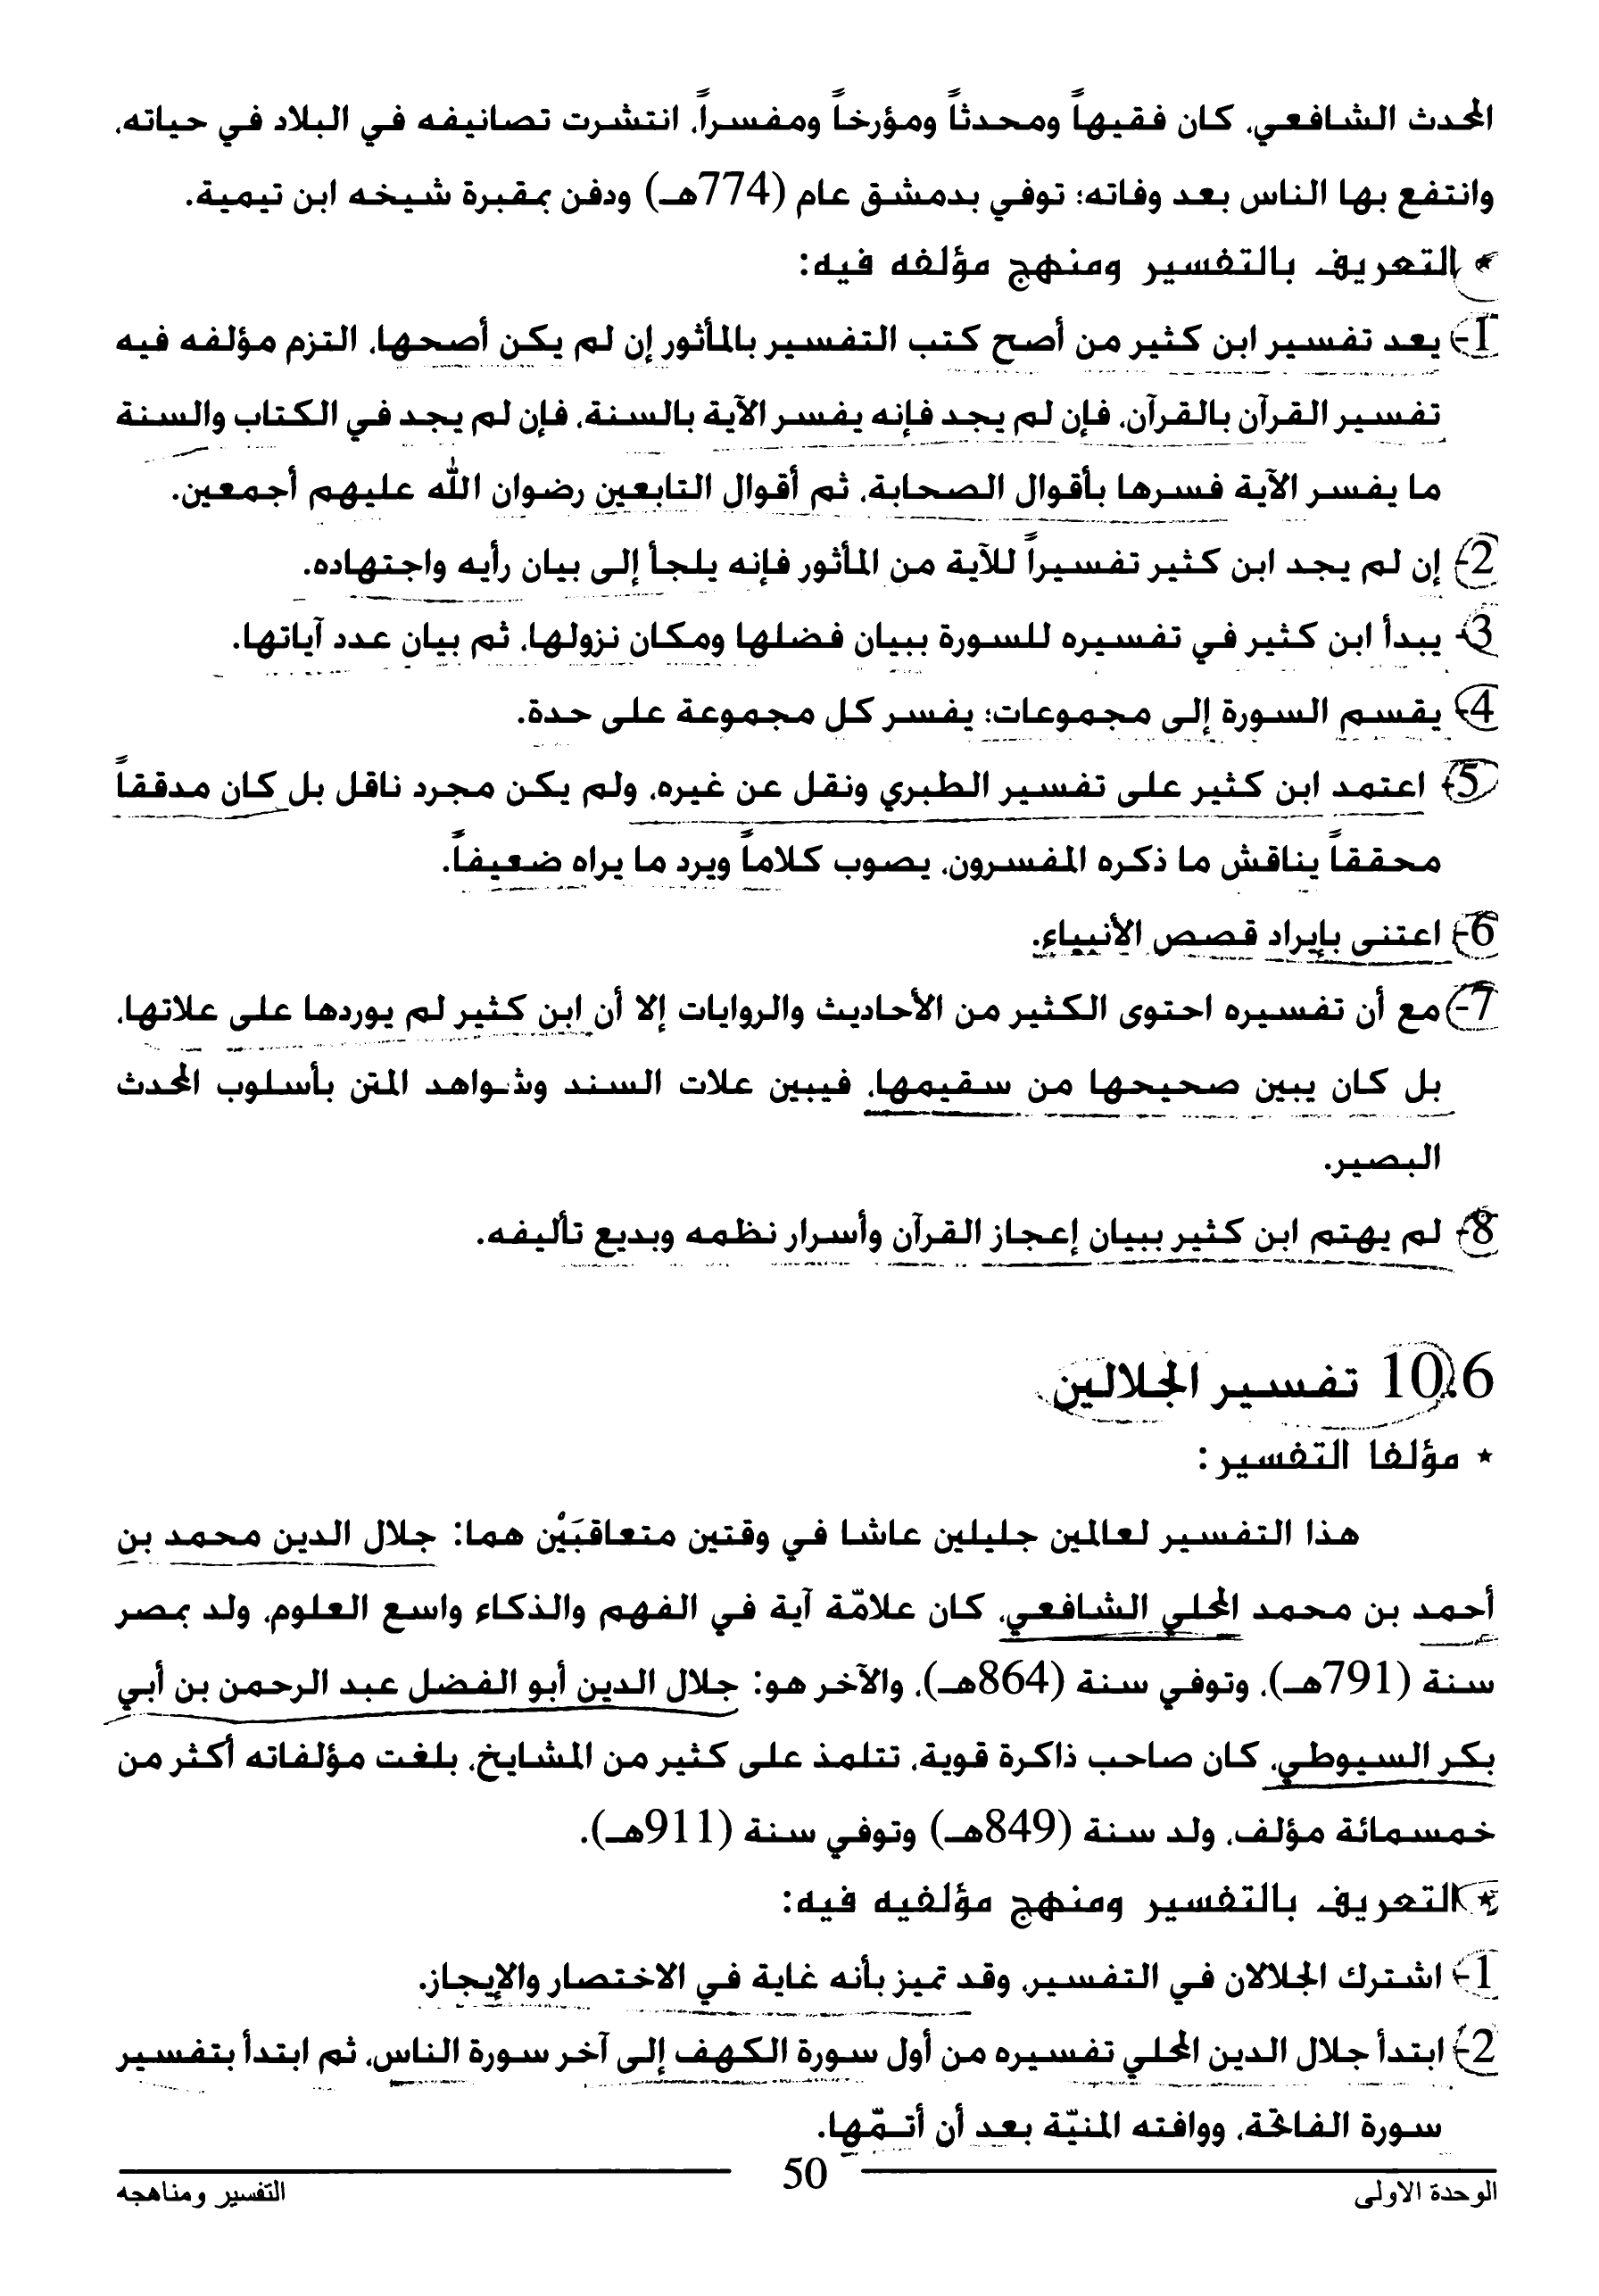 المحدث الشافعي، كان فقيهاً ومحدثاً ومؤرخاً ومفسراً، انتشرت تصانيفه في البلاد في حياته،
وانتفع بها الناس بعد وفاته؛ توفي بدمشق عام (774هـ) ودفن بمقبرة شيخه ابن تيمية.
* التعريف بالتفسير ومنهج مؤلفه فيه:
1- يعد تفسير ابن كثير من أصح كتب التفسير بالمأثور إن لم يكن أصحها، التزم مؤلفه فيه
تفسير القرآن بالقرآن، فإن لم يجد فإنه يفسر الآية بالسنة، فإن لم يجد في الكتاب والسنة
ما يفسر الآية فسرها بأقوال الصحابة، ثم أقوال التابعين رضوان الله عليهم أجمعين.
2- إن لم يجد ابن كثير تفسيراً للآية من المأثور فإنه يلجأ إلى بيان رأيه واجتهاده.
3- يبدأ ابن كثير في تفسيره للسورة ببيان فضلها ومكان نزولها، ثم بيان عدد آياتها.
4- يقسم السورة إلى مجموعات؛ يفسر كل مجموعة على حدة.
5- اعتمد ابن كثير على تفسير الطبري ونقل عن غيره، ولم يكن مجرد ناقل بل كان مدققاً
محققاً يناقش ما ذكره المفسرون، يصوب كلاماً ويرد ما يراه ضعيفاً.
6- اعتنى بإيراد قصص الأنبياء.
7- مع أن تفسيره احتوى الكثير من الأحاديث والروايات إلا أن ابن كثير لم يوردها على علاتها،
بل كان يبين صحيحها من سقيمها، فيبين علات السند وشواهد المتن بأسلوب المحدث
البصير.
8- لم يهتم ابن كثير ببيان إعجاز القرآن وأسرار نظمه وبديع تأليفه.
10.6 تفسير الجلالين
* مؤلفا التفسير:
هذا التفسير لعالمين جليلين عاشا في وقتين متعاقبَيْن هما: جلال الدين محمد بن
أحمد بن محمد المحلي الشافعي، كان علامّة آية في الفهم والذكاء واسع العلوم، ولد بمصر
سنة (791هـ)، وتوفي سنة (864هـ)، والآخر هو: جلال الدين أبو الفضل عبد الرحمن بن أبي
بكر السيوطي، كان صاحب ذاكرة قوية، تتلمذ على كثير من المشايخ، بلغت مؤلفاته أكثر من
خمسمائة مؤلف، ولد سنة (849هـ) وتوفي سنة (911هـ).
* التعريف بالتفسير ومنهج مؤلفيه فيه:
1- اشترك الجلالان في التفسير، وقد تميز بأنه غاية في الاختصار والإيجاز.
2- ابتدأ جلال الدين المحلي تفسيره من أول سورة الكهف إلى آخر سورة الناس، ثم ابتدأ بتفسير
سورة الفاتحة، ووافته المنيّة بعد أن أتـمّها.
الوحدة الاولى
50
التفسير ومناهجه